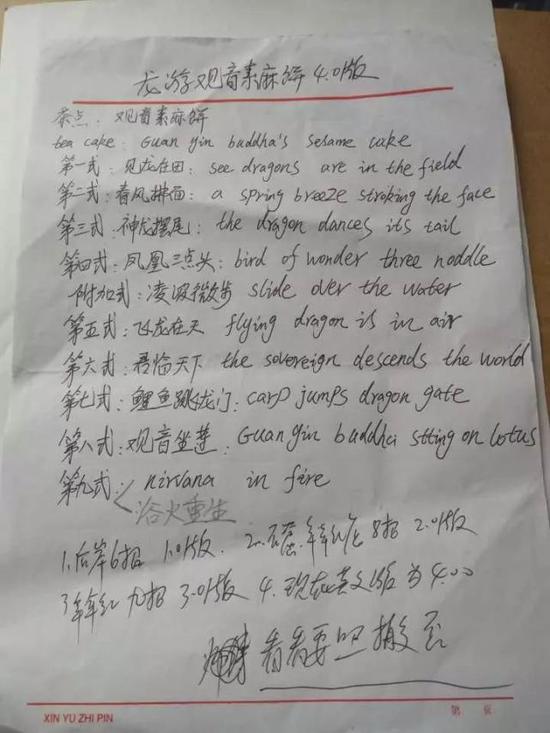 龙游观音素麻饼 4.0版
茶点: 观音素麻饼
tea cake: Guan yin buddha's sesame cake
第一式: 见龙在田: see dragons are in the field
第二式: 春风拂面: a spring breeze stroking the face
第三式: 神龙摆尾: the dragon dances its tail
第四式: 凤凰三点头: bird of wonder three noddle
附加式: 凌波微步 slide over the water
第五式: 飞龙在天 flying dragon is in air
第六式: 君临天下 the sovereign descends the world
第七式: 鲤鱼跳龙门: carp jumps dragon gate
第八式: 观音坐莲: Guan yin buddha stting on lotus
第九式: nirvana in fire
浴火重生
1.后岸6招 1.0版. 2. 年年红 8招 2.0版
3.年年红 九招 3.0版 4. 现在英文版为 4.00
看看要照搬否
XIN YU ZHI PIN
第 页